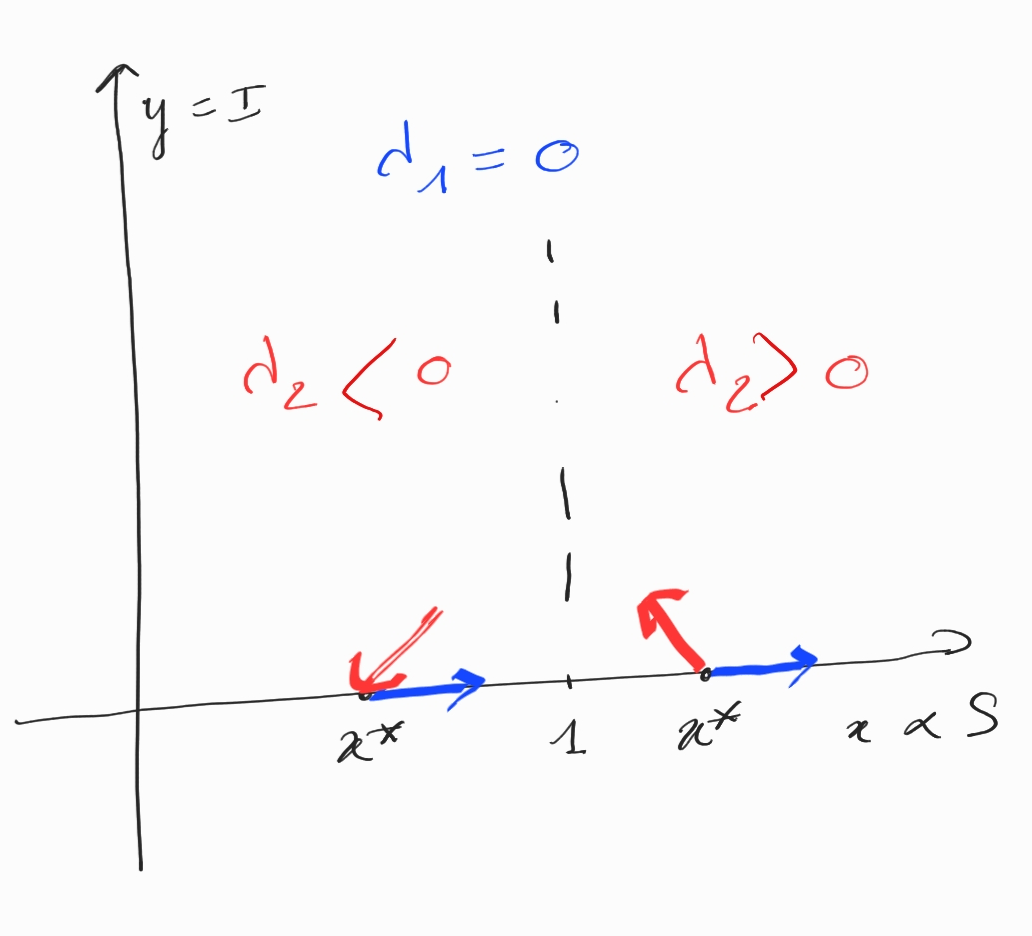 y = I
λ₁ = 0
λ₂ < 0
λ₂ > 0
x*
1
x*
x ∝ S